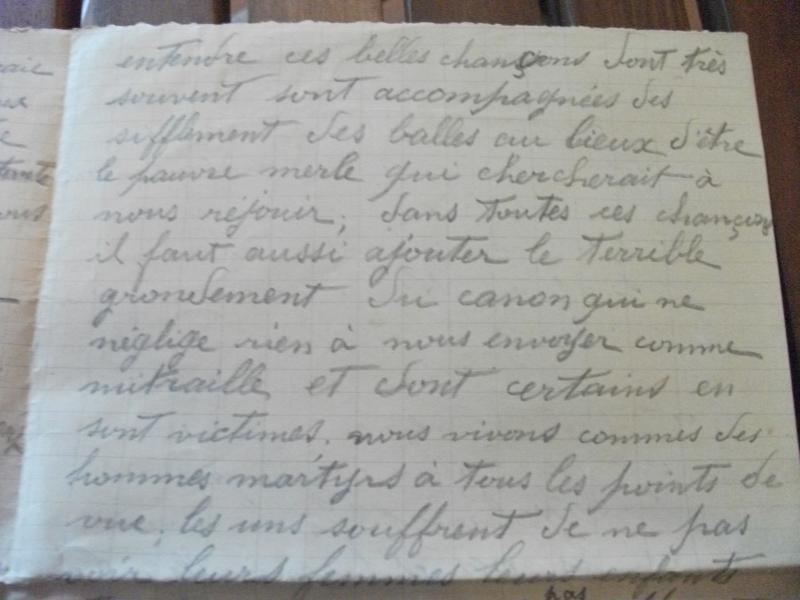 entendre ces belles chançons dont très
souvent sont accompagnées des
sifflement des balles au lieux d'être
le pauvre merle qui chercherait à
nous réjouir, dans toutes ces chançons
il faut aussi ajouter le terrible
grondement du canon qui ne
néglige rien à nous envoyer comme
mitraille et dont certains en
sont victimes. nous vivons commes des
hommes martyrs à tous les points de
vue, les uns souffrent de ne pas
voir leurs femmes leurs enfants
pas